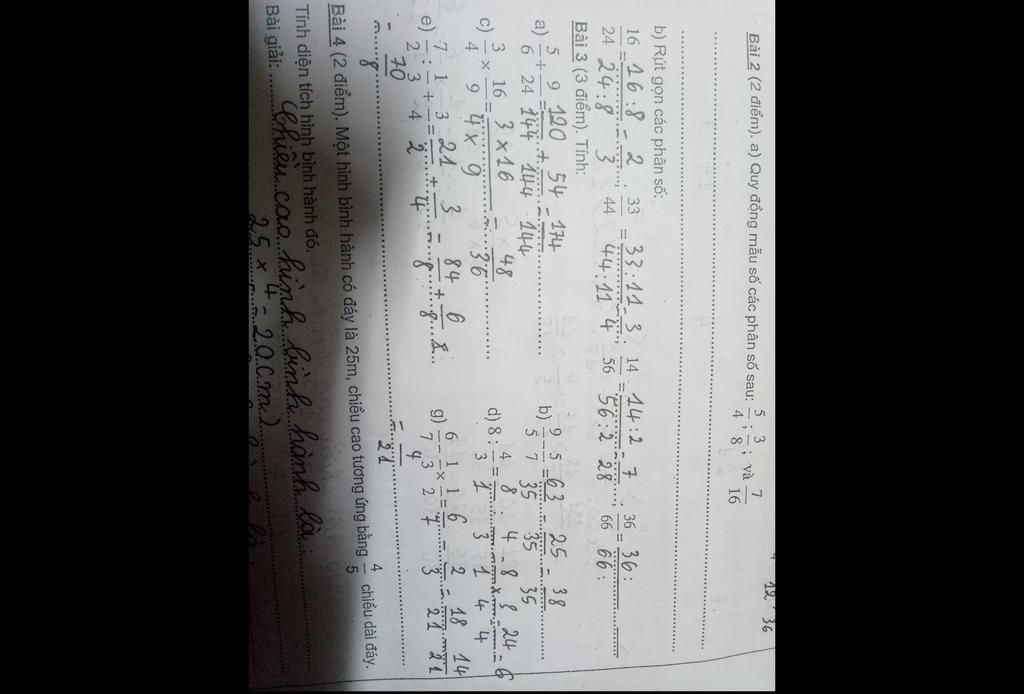 12 36
Bài 2 (2 điểm). a) Quy đồng mẫu số các phân số sau: 5/4 ; 3/8 ; và 7/16
b) Rút gọn các phân số:
16/24 = 16:8/24:8 = 2/3 ; 33/44 = 33:11/44:11 = 3/4 ; 14/56 = 14:2/56:2 = 7/28 ; 36/66 = 36:/66:
Bài 3 (3 điểm). Tính:
a) 5/6 + 9/24 = 120/144 + 54/144 = 174/144
b) 9/5 - 5/7 = 63/35 - 25/35 = 38/35
c) 3/4 × 16/9 = 3×16/4×9 = 48/36
d) 8 : 4/3 = 8/1 : 4/3 = 8/1 × 3/4 = 24/4 = 6
e) 7/2 : 1/3 + 3/4 = 21/2 + 3/4 = 84/8 + 6/8
= 70/8
g) 6/7 - 4/3 × 1/2 = 6/7 - 2/3 = 18/21 14/21
= 4/21
Bài 4 (2 điểm). Một hình bình hành có đáy là 25m, chiều cao tương ứng bằng 4/5 chiều dài đáy.
Tính diện tích hình bình hành đó.
Bài giải:
Chiều cao hình bình hành là:
25 × 4 = 20 (m)